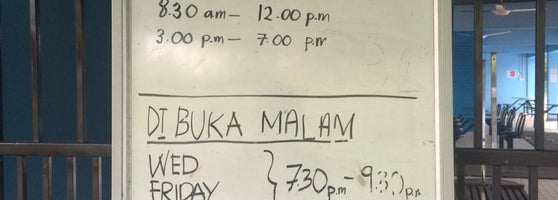 8.30 am – 12.00 p.m
3.00 p.m – 7.00 p.m
DI BUKA MALAM
WED } 7.30 p.m – 9.30 p.m
FRIDAY